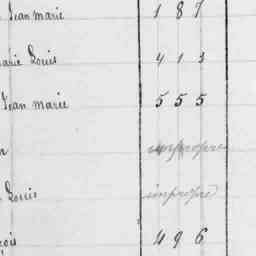 Jean marie 187
arie Louis 413
Jean marie 555
n impropre
Louis impropre
çois 496